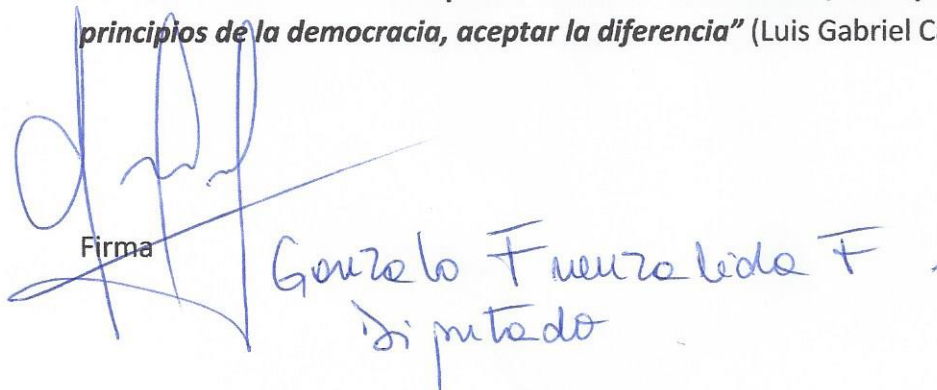 principios de la democracia, aceptar la diferencia” (Luis Gabriel Ca
Firma
Gonzalo Fuenzalida F.
Diputado